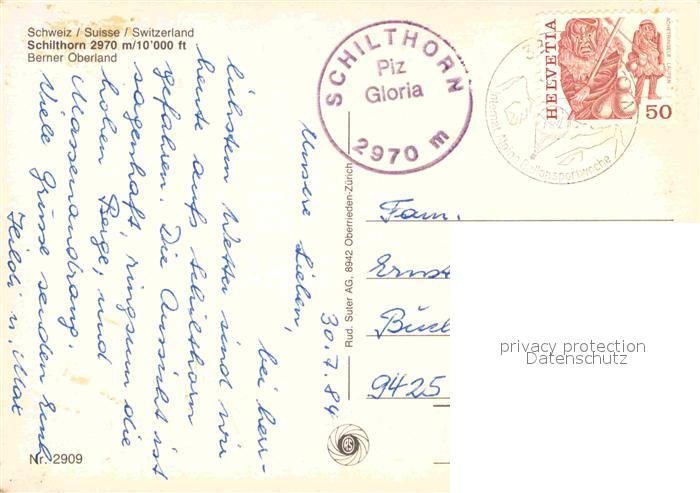 Schweiz / Suisse / Switzerland
Schilthorn 2970 m/10'000 ft
Berner Oberland
SCHILTHORN
Piz
Gloria
2970 m
HELVETIA
50
Internat. Alpine Ballonsportwoche
30.7.84
Unsere Lieben,
bei herr-
lichstem Wetter sind wir
heute aufs Schilthorn
gefahren. Die Aussicht ist
sagenhaft, ringsum die
hohen Berge, und
Massenandrang.
Viele Grüsse senden Euch
Heidi u. Max
Rud. Suter AG, 8942 Oberrieden-Zürich
Fam.
Ernst
9425
privacy protection
Datenschutz
Nr. 2909